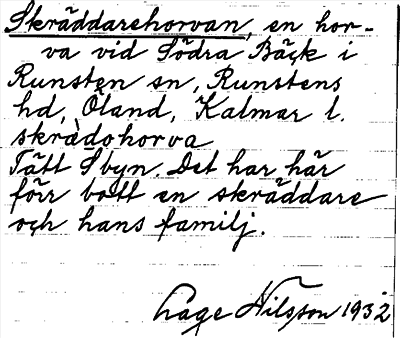 Skräddarehorvan, en hor-
va vid Södra Bäck i
Runsten sn, Runstens
hd, Öland, Kalmar l.
skrädohorva
Tätt S byn. Det har här
förr bott en skräddare
och hans familj.
Lage Nilsson 1932